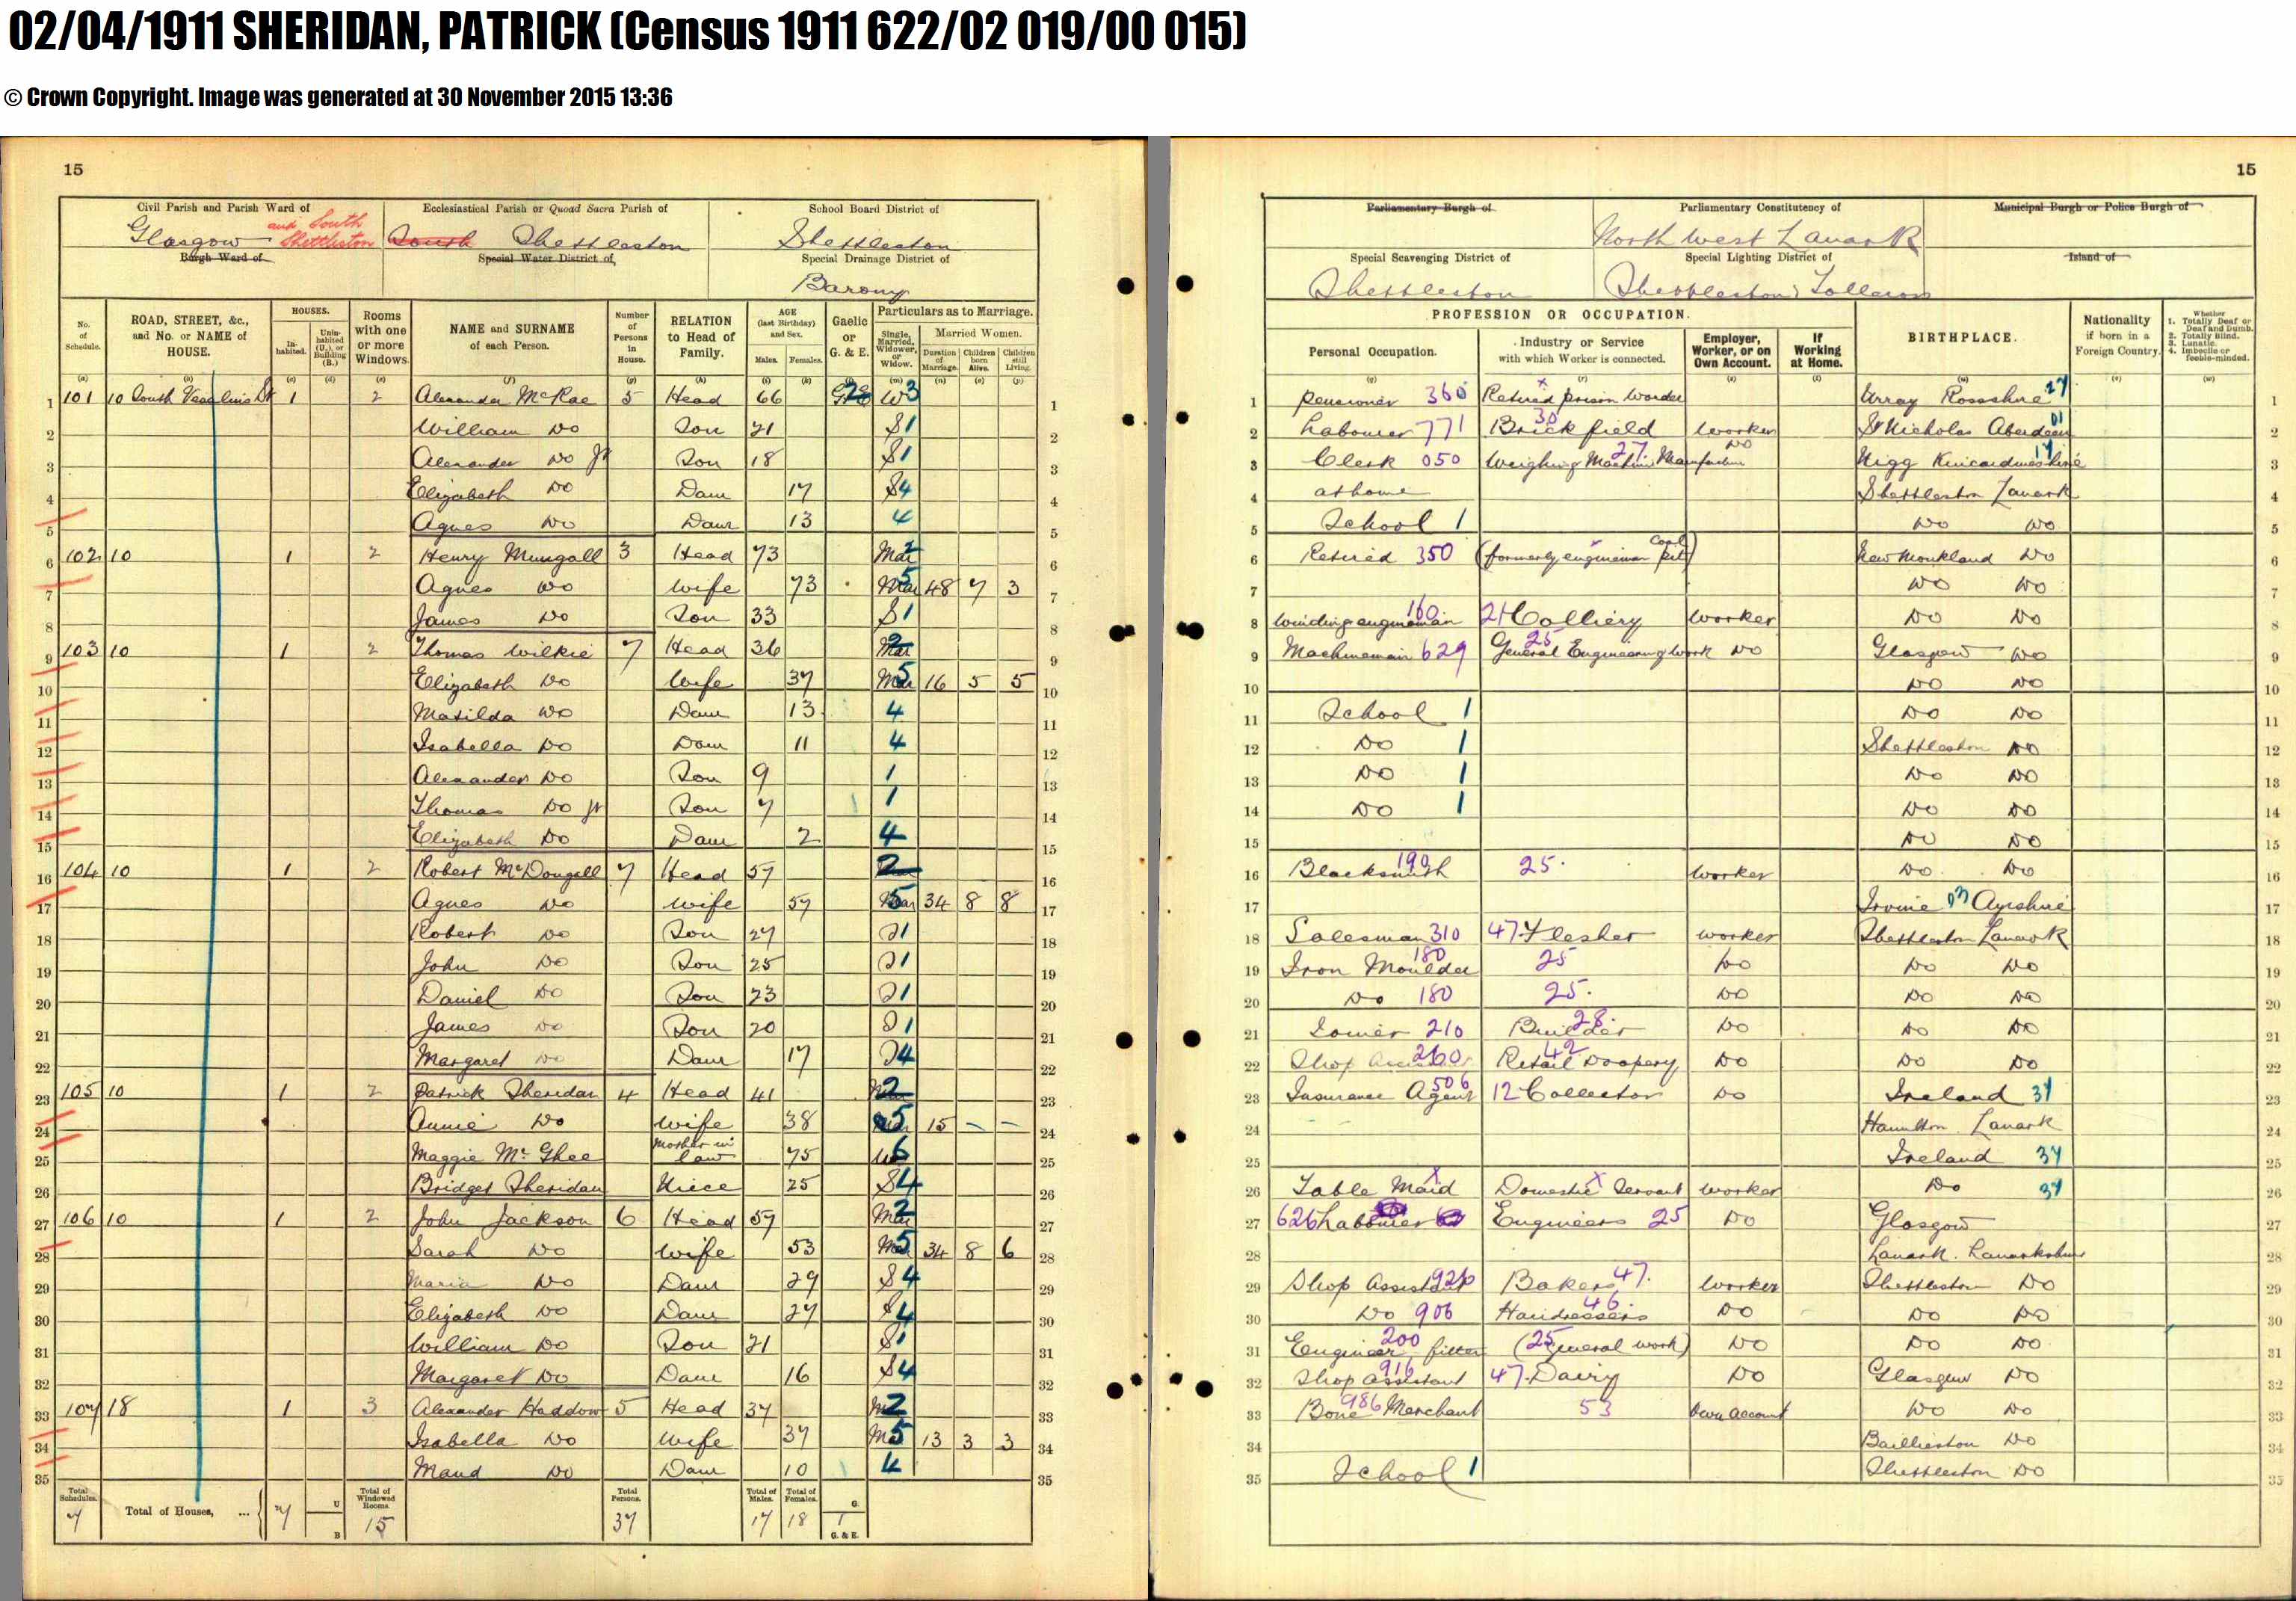 02/04/1911 SHERIDAN, PATRICK (Census 1911 622/02 019/00 015)
© Crown Copyright. Image was generated at 30 November 2015 13:36
15
Civil Parish and Parish Ward of Glasgow and South Shettleston
Ecclesiastical Parish or Quoad Sacra Parish of South Shettleston
School Board District of Shettleston
Burgh Ward of
Special Water District of
Special Drainage District of Barony
No. of Schedule.
ROAD, STREET, &c., and No. or NAME of HOUSE.
HOUSES.
In-habited.
Unin-habited (U.), or Building (B.)
Rooms with one or more Windows.
NAME and SURNAME of each Person.
Number of Persons in House.
RELATION to Head of Family.
AGE (last Birthday) and Sex.
Males. Females.
Gaelic or G. & E.
Particulars as to Marriage.
Single, Married, Widower, or Widow.
Married Women.
Duration of Marriage. Children born Alive. Children still Living.
1 101 10 South 1 2 Alexander McRae 5 Head 66 W 3 1
2 William Do Son 21 S 1 2
3 Alexander Do Jr Son 18 S 1 3
4 Elizabeth Do Daur 17 S 4 4
5 Agnes Do Daur 13 4 5
6 102 10 1 2 Henry Mungall 3 Head 73 Mar 2 6
7 Agnes Do Wife 73 Mar 5 48 7 3 7
8 James Do Son 33 S 1 8
9 103 10 1 2 Thomas Wilkie 7 Head 36 Mar 2 9
10 Elizabeth Do Wife 37 Mar 5 16 5 5 10
11 Matilda Do Daur 13 4 11
12 Isabella Do Daur 11 4 12
13 Alexander Do Son 9 1 13
14 Thomas Do Jr Son 7 1 14
15 Elizabeth Do Daur 2 4 15
16 104 10 1 2 Robert McDougall 7 Head 57 2 16
17 Agnes Do Wife 57 Mar 5 34 8 8 17
18 Robert Do Son 27 S 1 18
19 John Do Son 25 S 1 19
20 Daniel Do Son 23 S 1 20
21 James Do Son 20 S 1 21
22 Margaret Do Daur 17 S 4 22
23 105 10 1 2 Patrick Sheridan 4 Head 41 2 23
24 Annie Do Wife 38 5 15 – – 24
25 Maggie McGhee Mother in law 75 W 6 25
26 Bridget Sheridan Niece 25 S 4 26
27 106 10 1 2 John Jackson 6 Head 57 Mar 2 27
28 Sarah Do Wife 53 Mar 5 34 8 6 28
29 Maria Do Daur 29 S 4 29
30 Elizabeth Do Daur 27 S 4 30
31 William Do Son 21 S 1 31
32 Margaret Do Daur 16 S 4 32
33 107 18 1 3 Alexander Haddow 5 Head 37 M 2 33
34 Isabella Do Wife 37 Mar 5 13 3 3 34
35 Maud Do Daur 10 4 35
Total Schedules. 7
Total of Houses, ... 7 U B
Total of Windowed Rooms 15
Total Persons. 37
Total of Males. 17
Total of Females. 18
G. 1 G. & E.
15
Parliamentary Burgh of
Parliamentary Constituency of North West Lanark
Municipal Burgh or Police Burgh of
Special Scavenging District of Shettleston
Special Lighting District of Shettleston & Tollcross
Island of
PROFESSION OR OCCUPATION.
Personal Occupation.
Industry or Service with which Worker is connected.
Employer, Worker, or on Own Account.
If Working at Home.
BIRTHPLACE.
Nationality if born in a Foreign Country.
Whether 1. Totally Deaf or Deaf and Dumb. 2. Totally Blind. 3. Lunatic. 4. Imbecile or feeble-minded.
1 Pensioner 360 Retired prison Warder Urray Rossshire 27 1
2 Labourer 771 Brickfield 30 Worker St Nicholas Aberdeen 01 2
3 Clerk 050 Weighing Machine Manufacture 27 Do Nigg Kincardineshire 3
4 at home Shettleston Lanark 4
5 School 1 Do Do 5
6 Retired 350 (formerly engineman Coal Pit) New Monkland Do 6
7 Do Do 7
8 Winding engineman 160 21 Colliery Worker Do Do 8
9 Machineman 629 General Engineering Work 25 Do Glasgow Do 9
10 Do Do 10
11 School 1 Do Do 11
12 Do 1 Shettleston Do 12
13 Do 1 Do Do 13
14 Do 1 Do Do 14
15 Do Do 15
16 Blacksmith 190 25 Worker Do Do 16
17 Irvine 03 Ayrshire 17
18 Salesman 310 47 Flesher Worker Shettleston Lanark 18
19 Iron Moulder 180 25 Do Do Do 19
20 Do 180 25 Do Do Do 20
21 Joiner 210 Builder 28 Do Do Do 21
22 Shop Assistant 260 Retail Drapery 42 Do Do Do 22
23 Insurance Agent 506 12 Collector Do Ireland 37 23
24 Hamilton Lanark 24
25 Ireland 37 25
26 Table Maid Domestic Servant Worker Do 37 26
27 626 Labourer Engineers 25 Do Glasgow 27
28 Lanark Lanarkshire 28
29 Shop Assistant 920 Bakers 47 Worker Shettleston Do 29
30 Do 906 Hairdressers 46 Do Do Do 30
31 Engineer fitter 200 (General work) 25 Do Do Do 31
32 Shop Assistant 916 47 Dairy Do Glasgow Do 32
33 Bone Merchant 986 53 Own Account Do Do 33
34 Baillieston Do 34
35 School 1 Shettleston Do 35